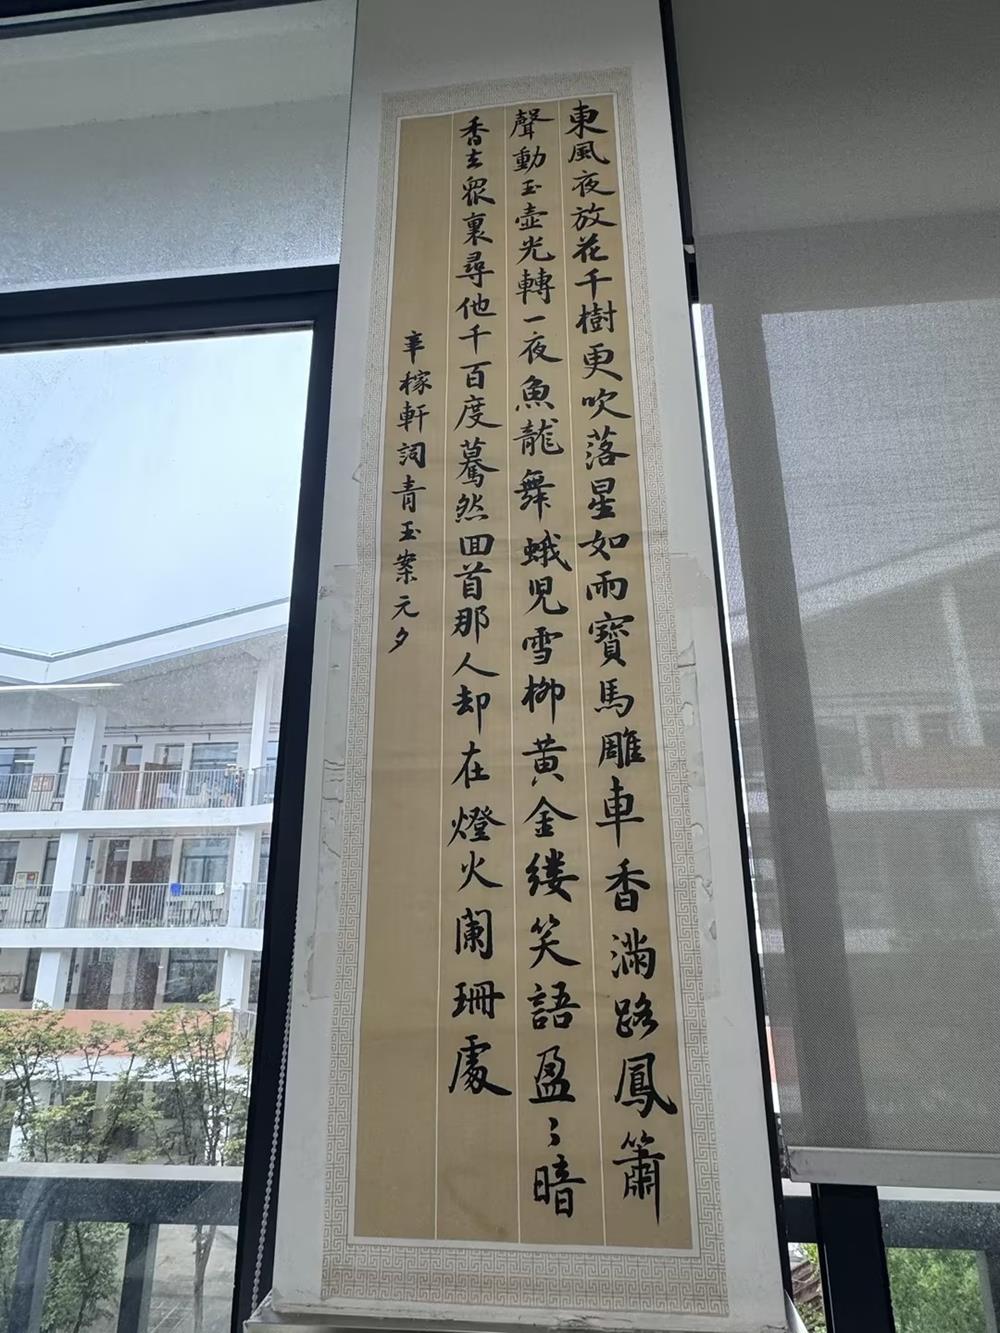 東風夜放花千樹更吹落星如雨寶馬雕車香滿路鳳簫
聲動玉壺光轉一夜魚龍舞蛾児雪柳黄金缕笑語盈〻暗
香去眾裏尋他千百度驀然回首那人却在燈火闌珊處
辛稼軒詞青玉案元夕